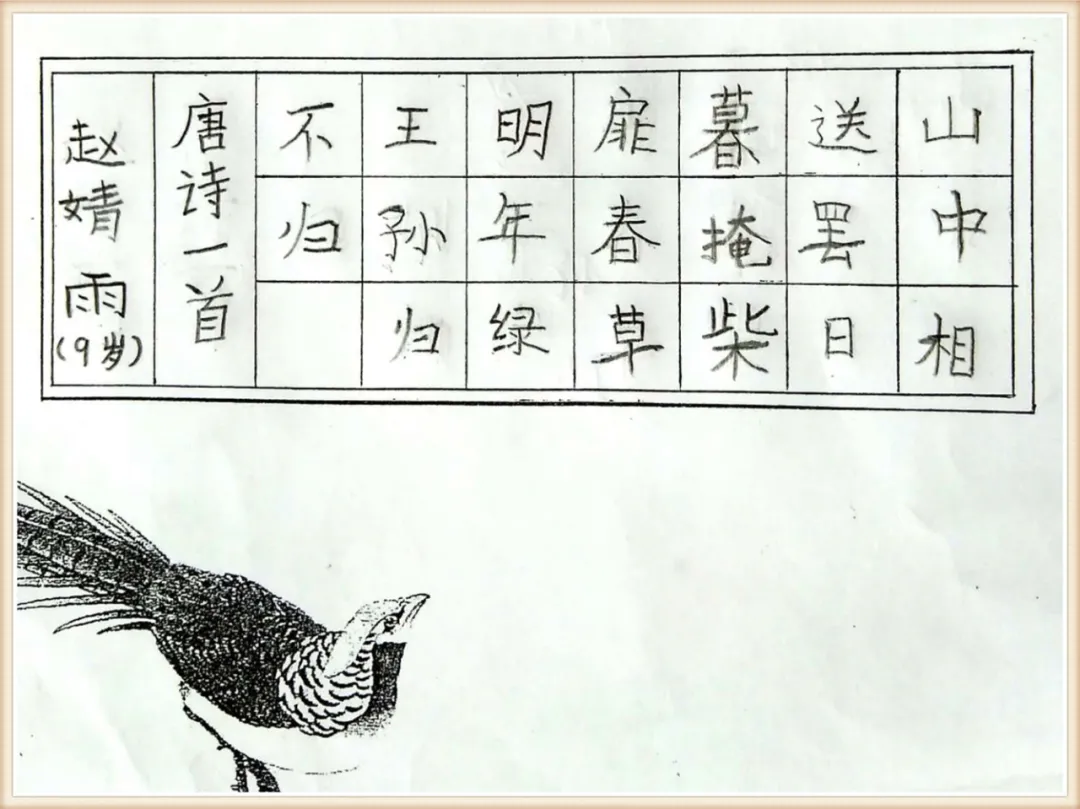 山中相
送罢日
暮掩柴
扉春草
明年绿
王孙归
不归
唐诗一首
赵婧雨(9岁)